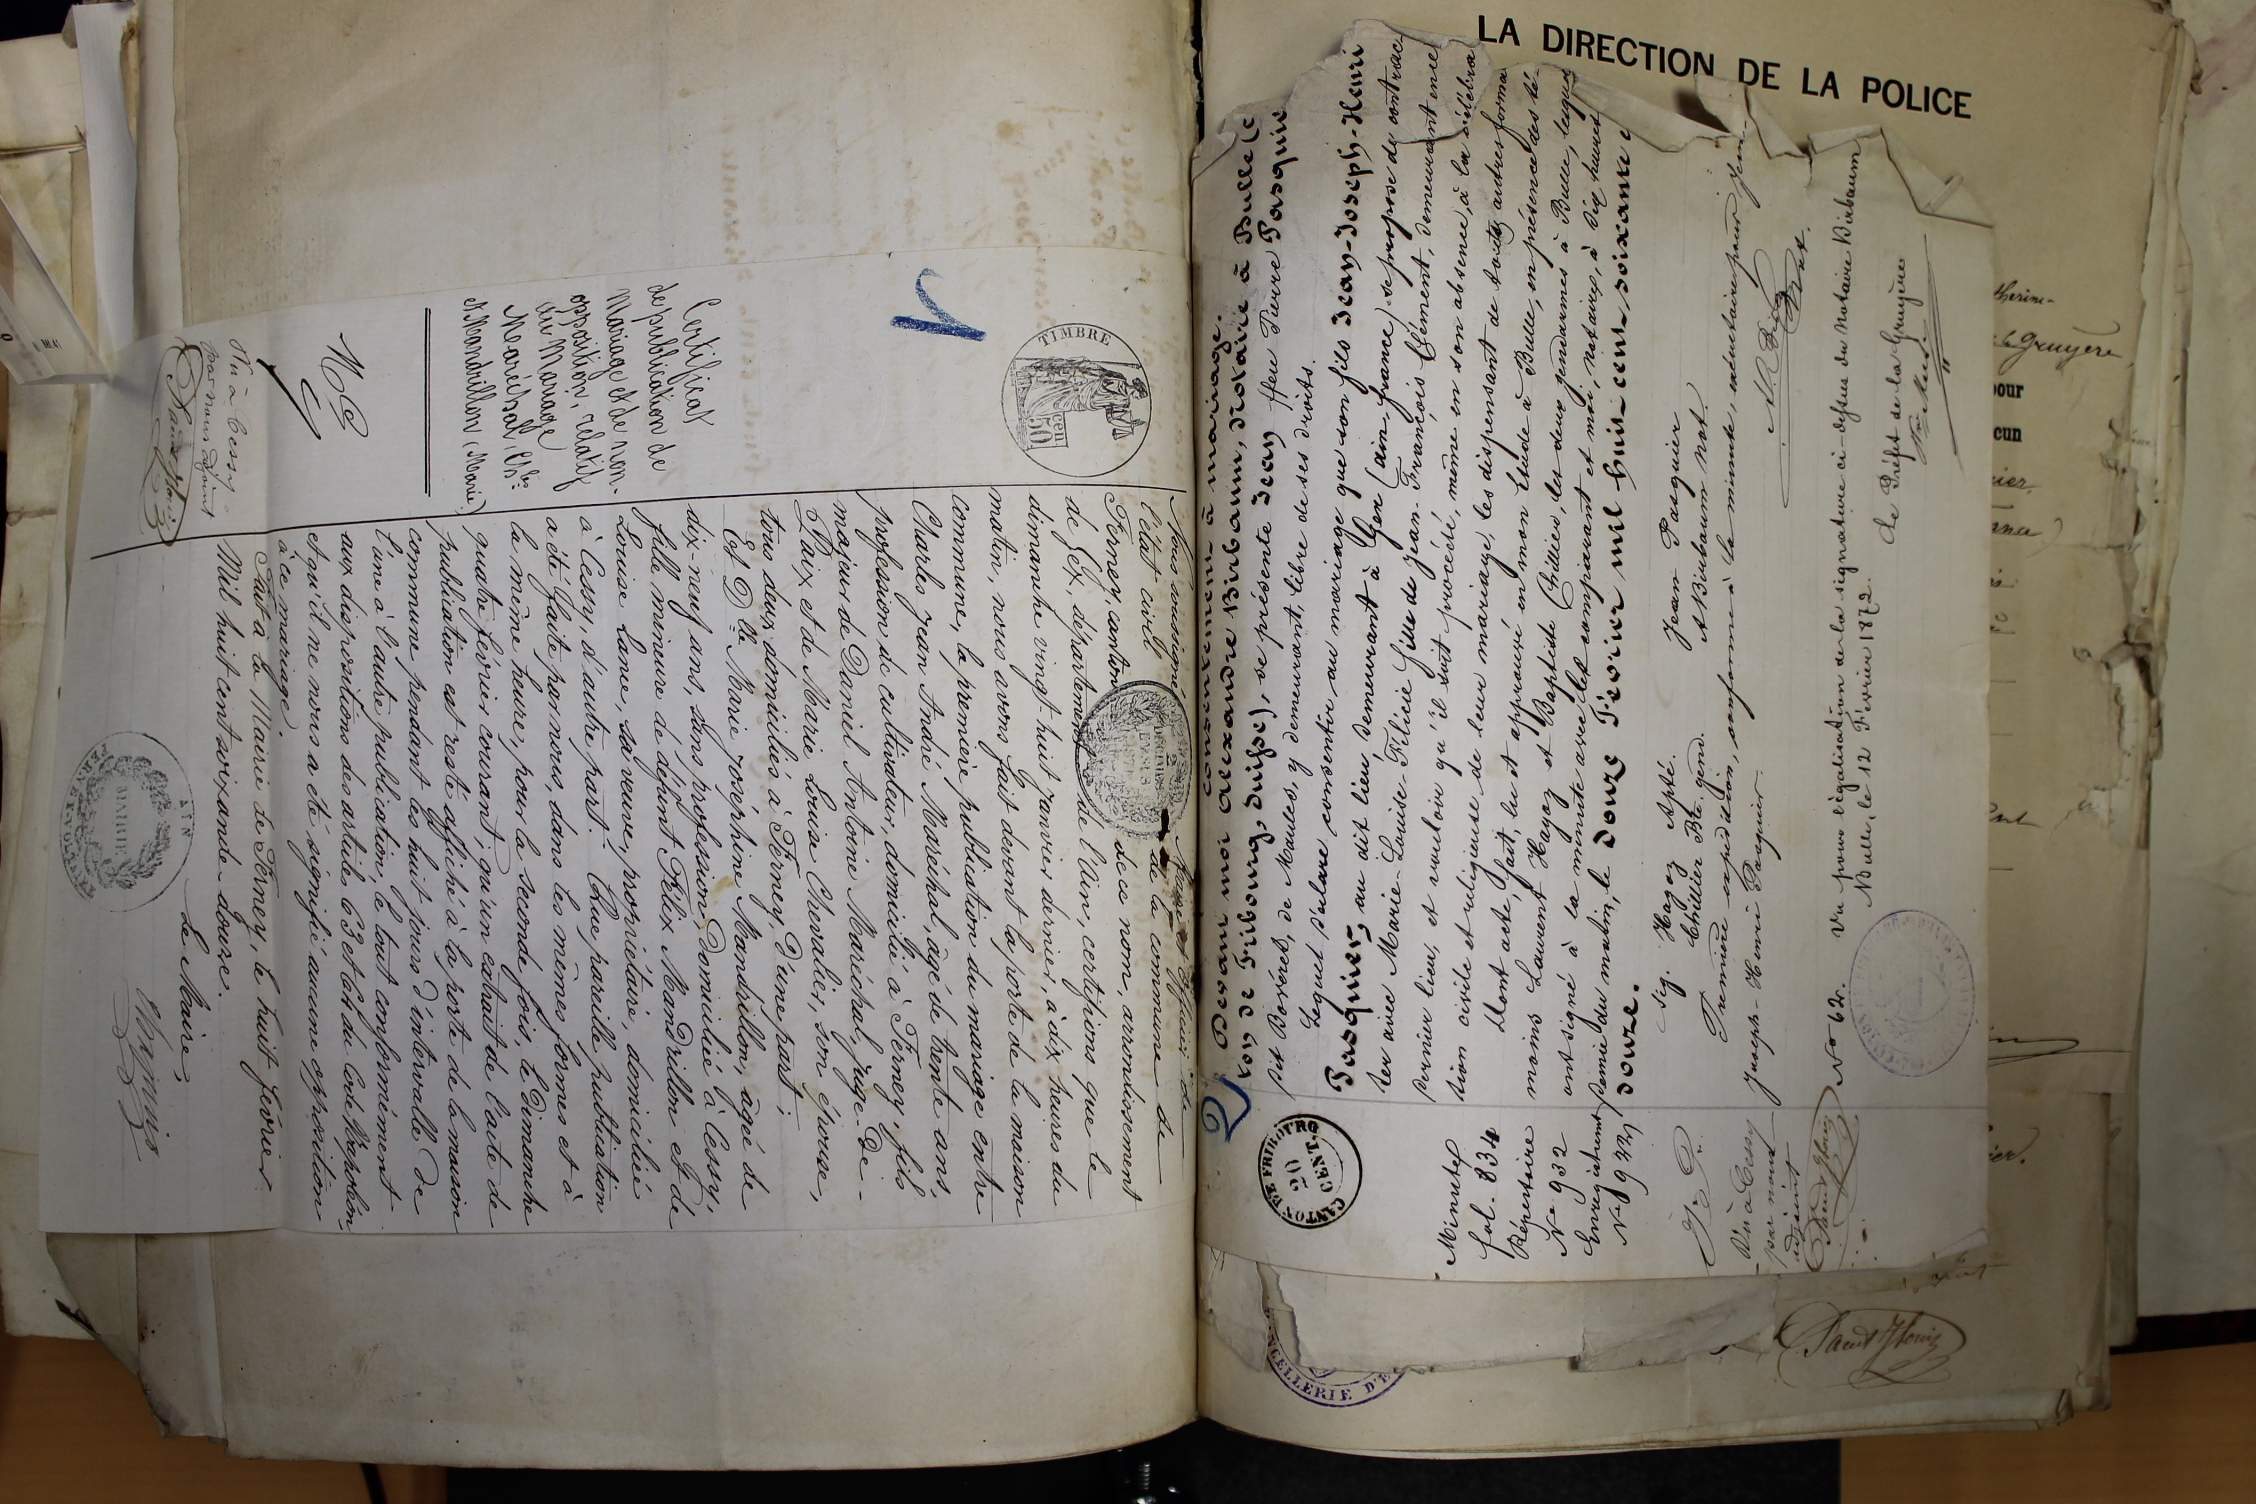 1
TIMBRE
50
cen
Certificat
de publication de
Mariage et de non-
opposition, relatif
au Mariage
Maréchal Ch.les
et Mandrillon (Marie)
N° 2
Vu à Cessy
par nous adjoint
Nous soussigné Maire et officier de
l'état civil de la commune de
Ferney, canton de ce nom, arrondissement
de Gex, département de l'Ain, certifions que le
dimanche vingt-huit janvier dernier, à dix heures du
matin, nous avons fait devant la porte de la maison
commune, la première publication du mariage entre
Charles Jean André Maréchal, âgé de trente ans,
profession de cultivateur, domicilié à Ferney, fils
majeur de Daniel Antoine Maréchal, juge-de-
Paix et de Marie Louise Chevalier, son épouse,
tous deux domiciliés à Ferney, d'une part;
Et D.lle Marie Joséphine Mandrillon, âgée de
dix-neuf ans, sans profession, domiciliée à Cessy,
fille mineure de défunt Félix Mandrillon et de
Louise Lame, sa veuve, propriétaire, domiciliée
à Cessy, d'autre part. Que pareille publication
a été faite par nous, dans les mêmes formes et à
la même heure, pour la seconde fois, le Dimanche
quatre février courant; qu'un extrait de l'acte de
publication est resté affiché à la porte de la maison
commune pendant les huit jours d'intervalle de
l'une à l'autre publication, le tout conformément
aux dispositions des articles 63 et 64 du Code Napoléon,
et qu'il ne nous a été signifié aucune opposition
à ce mariage.
Fait à la Mairie de Ferney, le huit février
Mil huit cent soixante-douze.
Le Maire,
MAIRIE
LA DIRECTION DE LA POLICE
2
Devant moi Alexandre Birbaum, notaire à Bulle (C
ton de Fribourg, Suisse), se présente Jean ffeu Pierre Pasquier
dit Boréret, de Maules, y demeurant, libre de ses droits.
Lequel déclare consentir au mariage que son fils Jean-Joseph-Henri
Pasquier, au dit lieu, demeurant à Gex (ain-france) se propose de contrac-
ter avec Marie-Louise-Félicie fille de Jean-François Clément, demeurant en ce
dernier lieu, et vouloir qu'il soit procédé, même en son absence, à la célébra
tion civile et religieuse de leur mariage, les dispensant de toutes autres forma
Dont acte, fait, lu et approuvé en mon Etude à Bulle, en présence des té-
moins Laurent Hayoz et Baptiste Chillier, les deux gendarmes à Bulle, lesquels
ont signé à la minute avec le comparant et moi, notaire, à dix heures
demie du matin, le douze Février mil huit-cent-soixante e
douze.
Sig. Hayoz Apté. Jean Pasquier
Chillier Bte. gend. A Birbaum not.
Première expédition, conforme à la minute, exécutoire pour Jean-
Joseph-Henri Pasquier.
Not.
N° 62. Vu pour légalisation de la signature ci-dessus du Notaire Birbaum
Bulle, le 12 Février 1872.
Le Préfet de la Gruyère
CANTON DE FRIBOURG
20
CENT.
Minutes
fol. 834
Répertoire
N° 932
Enregistrement
N° 932
Vu à Cessy
par nous
adjoint
therine-
la Gruyère
pour
cun